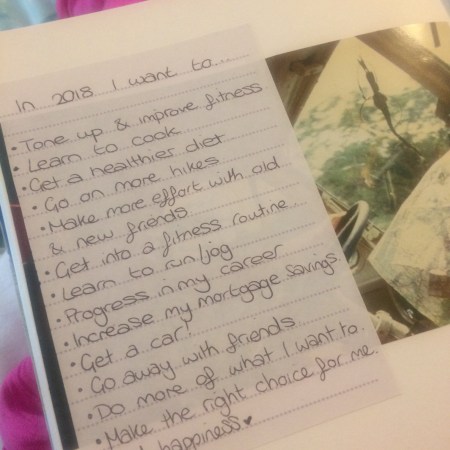 In 2018 I want to...
• Tone up & improve fitness
• Learn to cook
• Get a healthier diet
• Go on more hikes
• Make more effort with old
& new friends
• Get into a fitness routine.
• Learn to run/jog
• Progress in my career
• Increase my mortgage savings.
• Get a car!
• Go away with friends
• Do more of what I want to.
• Make the right choice for me.
happiness♥